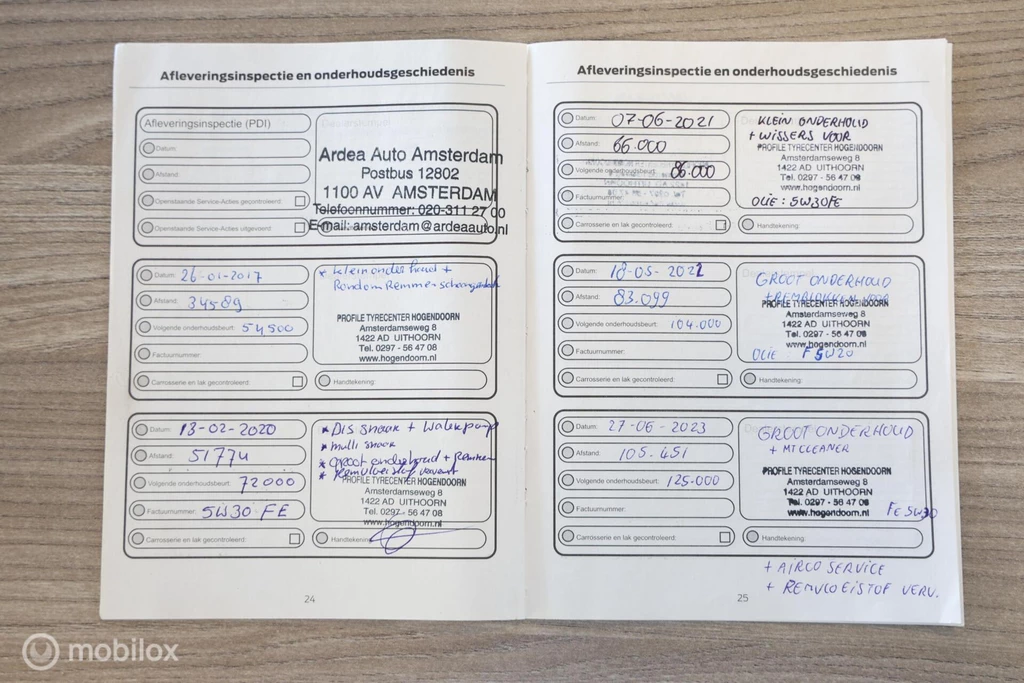 Afleveringsinspectie en onderhoudsgeschiedenis
Afleveringsinspectie (PDI)
Datum:
Afstand:
Openstaande Service-Acties gecontroleerd:
Openstaande Service-Acties uitgevoerd:
Ardea Auto Amsterdam
Postbus 12802
1100 AV AMSTERDAM
Telefoonnummer: 020-311 27 00
E-mail: amsterdam@ardeaauto.nl
Datum: 26-01-2017
Afstand: 34589
Volgende onderhoudsbeurt: 54500
Factuurnummer:
Carrosserie en lak gecontroleerd:
* Klein onderhoud +
Rondom Remmen schoongemaakt
PROFILE TYRECENTER HOGENDOORN
Amsterdamseweg 8
1422 AD UITHOORN
Tel. 0297 - 56 47 08
www.hogendoorn.nl
Handtekening:
Datum: 13-02-2020
Afstand: 51774
Volgende onderhoudsbeurt: 72000
Factuurnummer: 5W30 FE
Carrosserie en lak gecontroleerd:
* Dis snaar + Waterpomp
* multi snaar
* Groot onderhoud + Remmen
* Remvloeistof ververst
PROFILE TYRECENTER HOGENDOORN
Amsterdamseweg 8
1422 AD UITHOORN
Tel. 0297 - 56 47 08
www.hogendoorn.nl
Handtekening:
24
Afleveringsinspectie en onderhoudsgeschiedenis
Datum: 07-06-2021
Afstand: 66.000
Volgende onderhoudsbeurt: 86.000
Factuurnummer:
Carrosserie en lak gecontroleerd:
KLEIN ONDERHOUD
+ WISSERS VOOR
PROFILE TYRECENTER HOGENDOORN
Amsterdamseweg 8
1422 AD UITHOORN
Tel. 0297 - 56 47 08
www.hogendoorn.nl
OLIE: 5W30FE
Handtekening:
Datum: 18-05-2022
Afstand: 83.099
Volgende onderhoudsbeurt: 104.000
Factuurnummer:
Carrosserie en lak gecontroleerd:
GROOT ONDERHOUD
+ REMBLOKKEN VOOR
PROFILE TYRECENTER HOGENDOORN
Amsterdamseweg 8
1422 AD UITHOORN
Tel. 0297 - 56 47 08
www.hogendoorn.nl
OLIE: F 5W20
Handtekening:
Datum: 27-06-2023
Afstand: 105.451
Volgende onderhoudsbeurt: 125.000
Factuurnummer:
Carrosserie en lak gecontroleerd:
GROOT ONDERHOUD
+ MTCLEANER
PROFILE TYRECENTER HOGENDOORN
Amsterdamseweg 8
1422 AD UITHOORN
Tel. 0297 - 56 47 08
www.hogendoorn.nl
FE 5W30
Handtekening:
+ AIRCO SERVICE
+ REMVLOEISTOF VERV.
25
mobilox